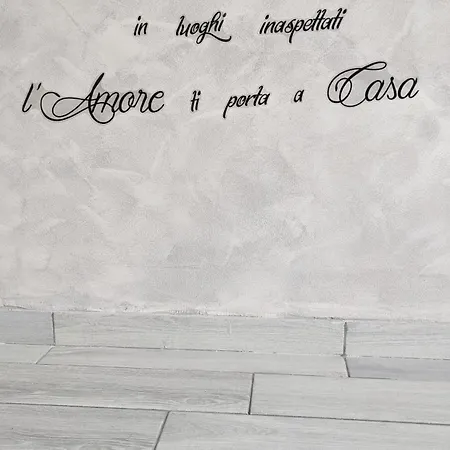 in luoghi inaspettati
l'Amore ti porta a Casa